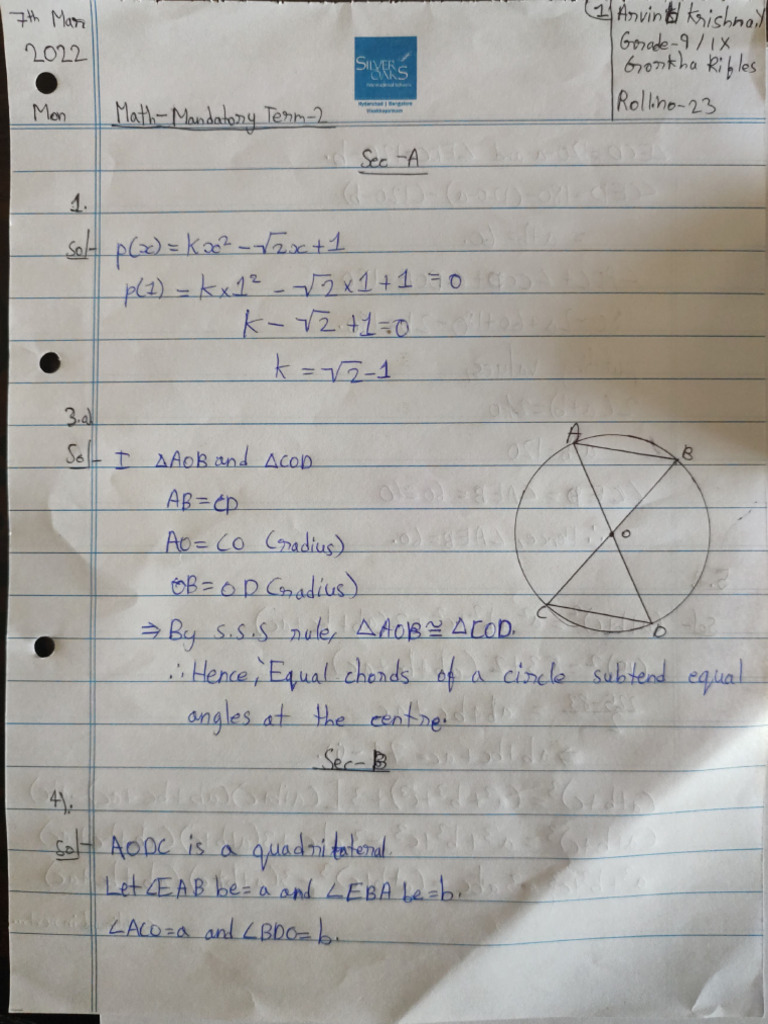 7th Mar
2022
Mon
SILVER OAKS
International Schools
Hyderabad | Bangalore
Visakhapatnam
1
Arvind Krishna
Grade-9/IX
Gorkha Rifles
Rollno-23
Math-Mandatory Term-2
Sec-A
1.
Sol- p(x) = kx² - √2x + 1
p(1) = k×1² - √2×1+1 = 0
k - √2 +1=0
k = √2-1
3.a)
Sol- I △AOB and △COD
AB = CD
AO = CO (radius)
OB = OD (radius)
⇒ By s.s.s rule, △AOB ≅ △COD.
∴ Hence, Equal chords of a circle subtend equal
angles at the centre.
A
B
O
C
D
Sec-B
4).
Sol- AODC is a quadrilateral.
Let ∠EAB be=a and ∠EBA be=b.
∠ACO=a and ∠BDO=b.